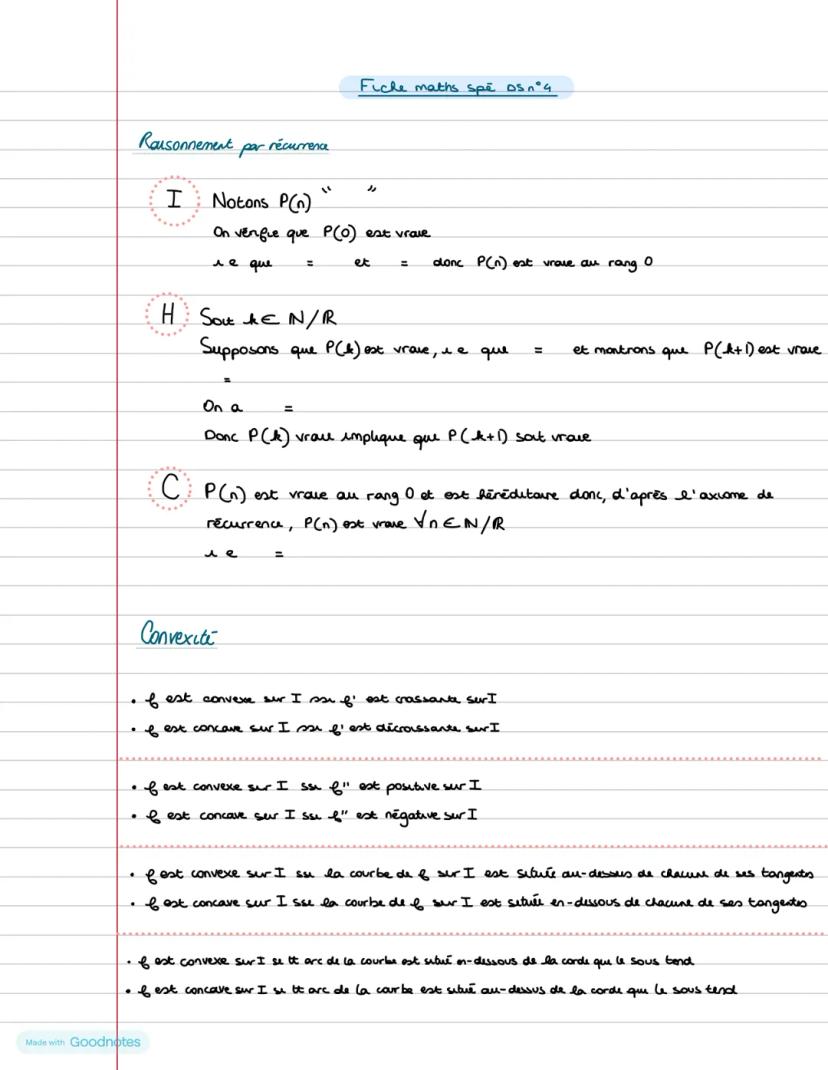 Fiche maths spé DS n°4
Raisonnement par récurrence
I Notons P(n) " "
On vérifie que P(0) est vraie
i e que = et = donc P(n) est vraie au rang 0
H Soit k ∈ N/R
Supposons que P(k) est vraie, i e que = et montrons que P(k+1) est vraie
=
On a =
Donc P(k) vraie implique que P(k+1) soit vraie
C P(n) est vraie au rang 0 et est héréditaire donc, d'après l'axiome de
récurrence, P(n) est vraie ∀n ∈ N/R
i e =
Convexité
• f est convexe sur I ssi f' est croissante sur I
• f est concave sur I ssi f' est décroissante sur I
• f est convexe sur I ssi f'' est positive sur I
• f est concave sur I ssi f'' est négative sur I
• f est convexe sur I ssi la courbe de f sur I est située au-dessus de chacune de ses tangentes
• f est concave sur I ssi la courbe de f sur I est située en-dessous de chacune de ses tangentes
• f est convexe sur I si tt arc de la courbe est situé en-dessous de la corde que le sous tend
• f est concave sur I si tt arc de la courbe est situé au-dessus de la corde que le sous tend
Made with Goodnotes